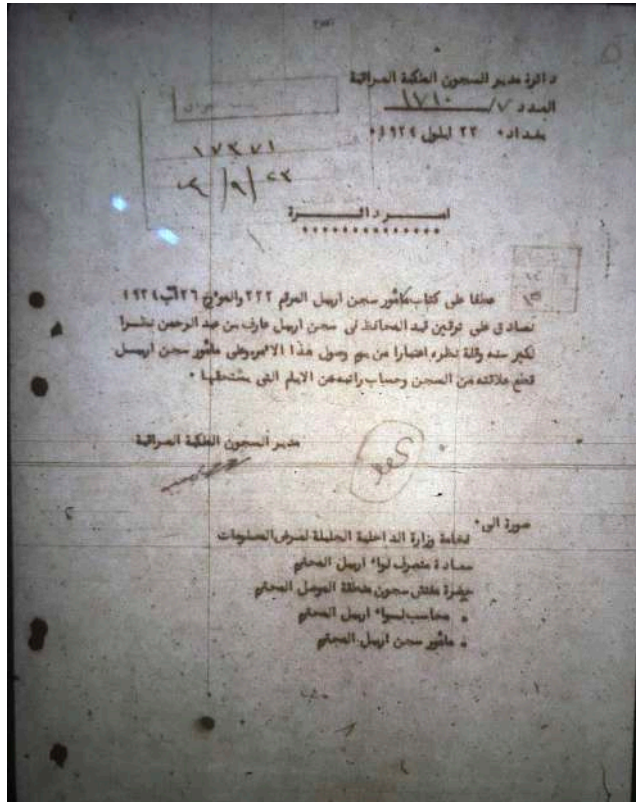 دائرة مدير السجون الملكية العراقية
العدد ٧/ ١٧١٠
بغداد ٢٢ ايلول ١٩٢٤
١٧٣٧١
٢٣/٩/٢٤
امر دائرة
عطفا على كتاب مأمور سجن اربيل المرقم ٢٢٢ والمؤرخ ٢٦ آب ١٩٢٤
نصادق على ترقين قيد المحافظ في سجن اربيل عارف بن عبد الرحمن نظرا
لكبر سنه وقلة نظره اعتبارا من يوم وصول هذا الامر وعلى مأمور سجن اربيل
قطع علاقته من السجن وحساب راتبه عن الايام التي يستحقها ٠
مدير السجون الملكية العراقية
صورة الى
فخامة وزارة الداخلية الجليلة لعرض المعلومات
سعادة متصرف لواء اربيل المحترم
حضرة مفتش سجون منطقة الموصل المحترم
محاسب لواء اربيل المحترم
مأمور سجن اربيل المحترم